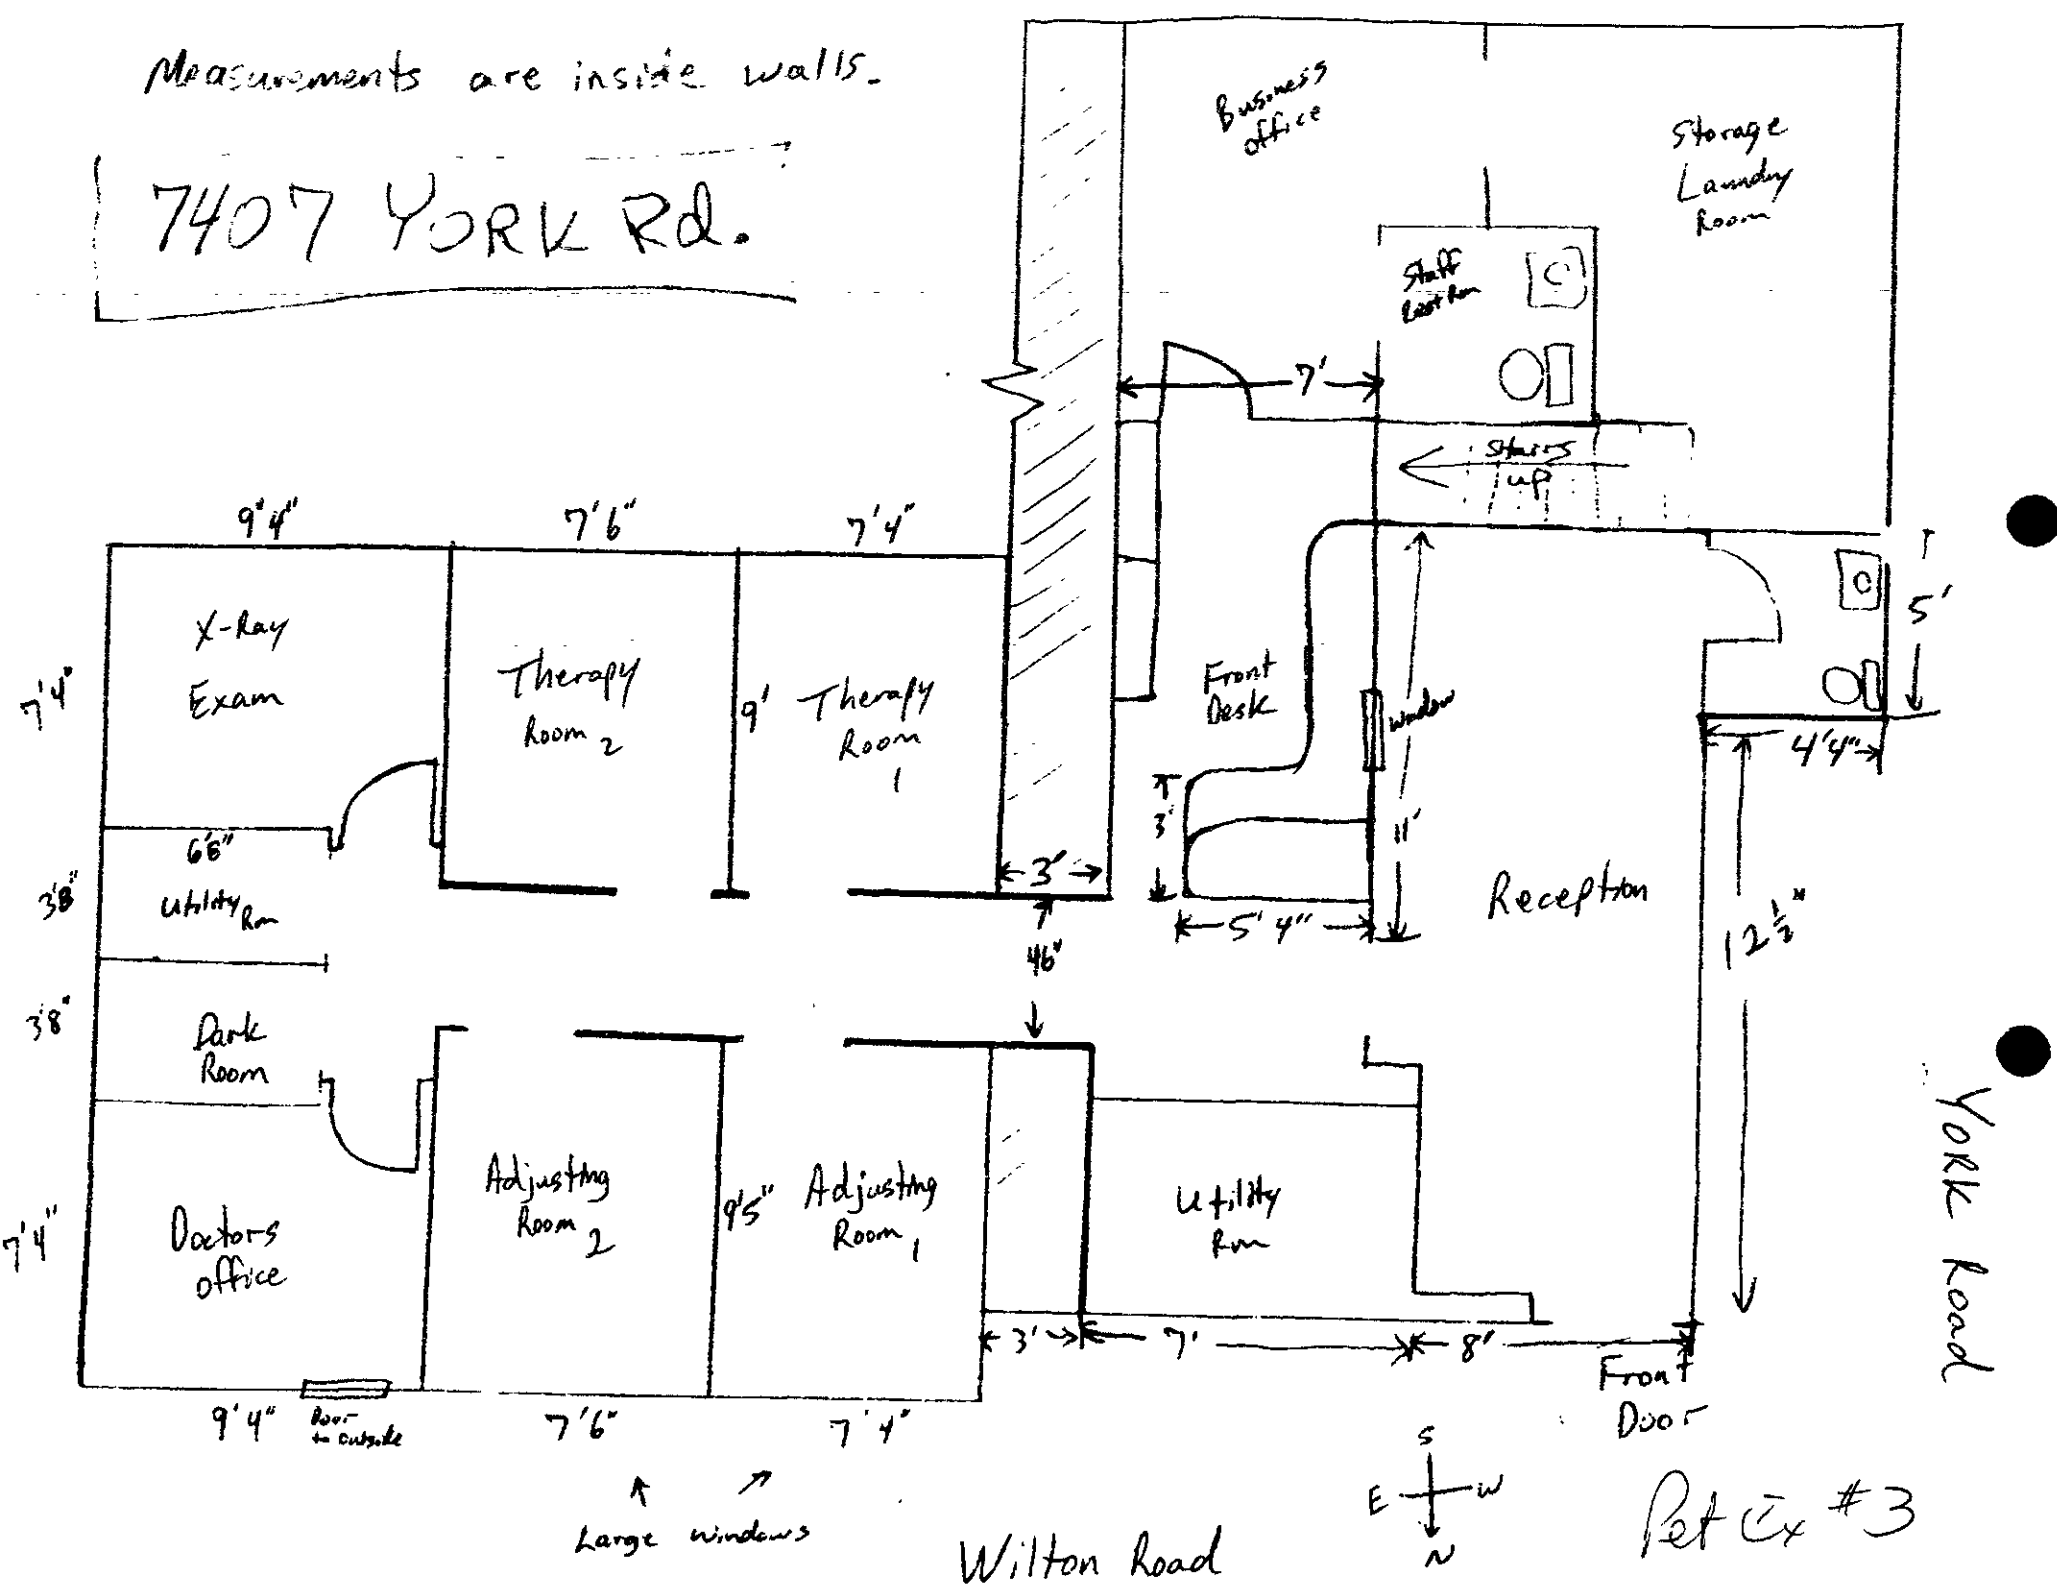 Measurements are inside walls.
7407 YORK Rd.
Business
office
Storage
Laundry
Room
Staff
Rest Rm
7'
Stairs
up
9'4"
7'6"
7'4"
X-Ray
Exam
7'4"
Therapy
Room 2
9'
Therapy
Room
1
Front
Desk
window
5'
4'4"
3'
11'
6'8"
Utility Rm
3'8"
3'
5'4"
Reception
12 1/2"
46"
3'8"
Dark
Room
Adjusting
Room 2
9'5"
Adjusting
Room 1
Utility
Rm
Doctors
office
7'4"
3'
7'
8'
Front
Door
York Road
9'4"
Door
to outside
7'6"
7'4"
Large windows
S
E
W
N
Wilton Road
Pet Ex #3